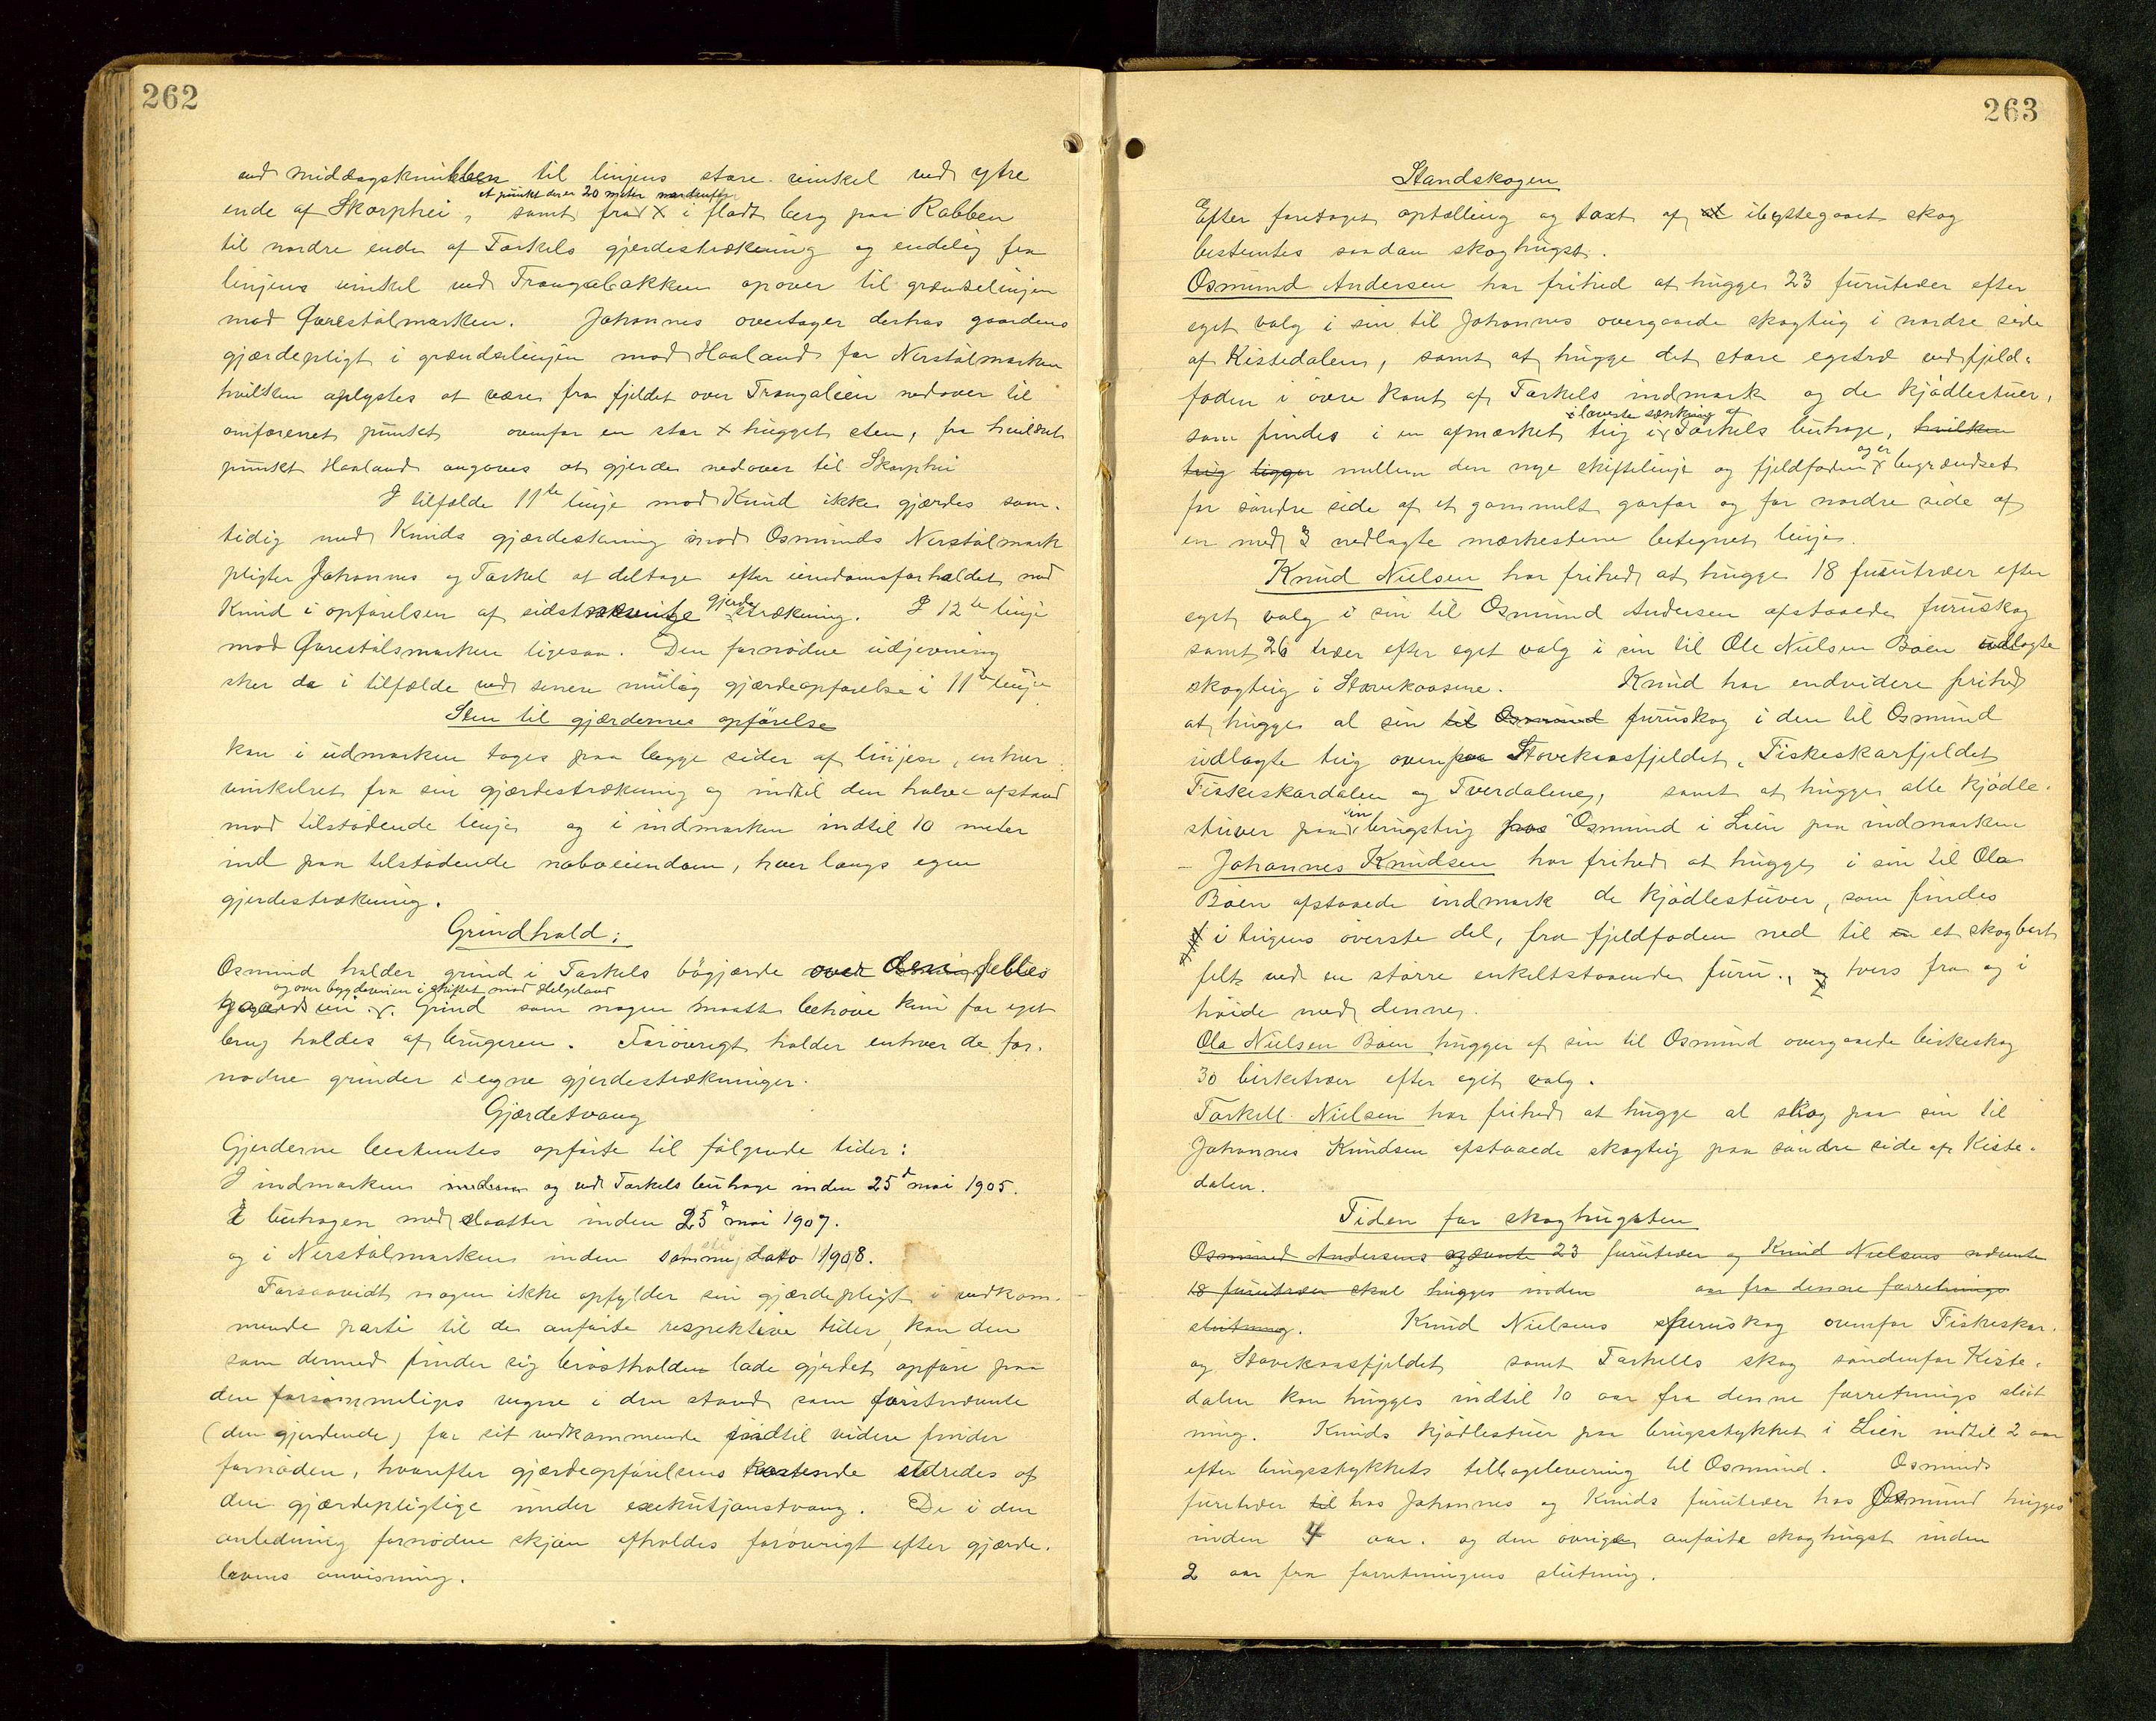 262
ved middagsknibben til linjens store vinkel ved ytre
et punkt der er 20 meter nordenfor
ende af Skorphei, samt fra x i fladt berg paa Rabben
til nordre ende af Tarkels gjerdestrækning og endelig fra
linjens vinkel ved Trangalbakken opover til grændselinjen
mod Øvrestølmarken. Johannes overtager derhos gaardens
gjærdepligt i grændselinjen mod Haaland for Nerstølmarken
hvilken oplystes at være fra fjeldet over Trangaleien nedover til
omforenet punkt ovenfor en stor x hugget sten, fra hvilket
punkt Haaland angaves at gjerde nedover til Skorphei
I tilfælde 11te linje mod Knud ikke gjærdes sam-
tidig med Knuds gjærdestævning mod Osmunds Nerstølmark
pligter Johannes og Tarkel at deltage efter eiendomsforholdet med
Knud i opførelsen af sidstnævnte gjerdestrækning. I 12te linje
mod Øvrestølsmarken ligesaa. Den fornødne udjevning
sker da i tilfælde ved senere mulig gjærdeopførelse i 11te linje
Sten til gjærdernes opførelse
kan i udmarken tages paa begge sider af linjen, enhver
vinkelret fra sin gjærdestrækning og indtil den halve afstand
mod tilstødende linje og i indmarken indtil 10 meter
ind paa tilstødende naboeiendom, hver langs egen
gjerdestrækning.
Grindhold:
Osmund holder grind i Tarkels bøgjærde over den fælles
og over bygdeveien i skiftet mod Helgeland
gaardsvei. Grind som nogen maatte behøve kun for eget
brug holdes af brugeren. Forøvrigt holder enhver de for-
nødne grinder i egne gjerdestrækninger.
Gjærdetvang
Gjerderne bestemtes opførte til følgende tider:
I indmarken og ved Tarkels buhage inden 25d mai 1905.
I buhagen med slaatter inden 25d mai 1907.
og i Nerstølmarken inden samme dato 1908.
Forsaavidt nogen ikke opfylder sin gjærdepligt i vedkom-
mende parti til de anførte respektive tider, kan den
som dermed finder sig brøstholden lade gjerdet opføre paa
den forsømmeliges vegne i den stand som førstnævnte
(den gjerdende) for sit vedkommende indtil videre finder
fornøden, hvorefter gjærdeopførelsens kostende udredes af
den gjærdepligtige under exekutjonstvang. De i den
anledning fornødne skjøn afholdes forøvrigt efter gjærde-
lovens anvisning.
263
Standskogen
Efter foretaget optælling og taxt af ibyttegaaet skog
bestemtes saadan skoghugst.
Osmund Andersen har frihed at hugge 23 furutræer efter
eget valg i sin til Johannes overgaaede skogteig i nordre side
af Kistedalen, samt at hugge det store egetræ ved fjeld-
foden i øvre kant af Tarkels indmark og de kjødlestuer,
i laveste sænkning af
som findes i en afmærket teig i Tarkels buhage, hvilken
og er
teig ligger mellem den nye skiftelinje og fjeldfoden begrændset
for søndre side af et gammelt garfar og for nordre side af
en med 3 nedlagte mærkestene betegnet linje.
Knud Nielsen har frihed at hugge 18 furutræer efter
eget valg i sin til Osmund Andersen afstaaede furuskog
samt 26 træer efter eget valg i sin til Ole Nielsen Bøen udlagte
skogteig i Stovekaasene. Knud har endvidere frihed
at hugge al sin til Osmund furuskog i den til Osmund
udlagte teig oven paa Stovekaasfjeldet, Fiskeskarfjeldet
Fiskeskardalen og Tverdalene, samt at hugge alle kjødle-
stuver paa sin brugsteig hos Osmund i Lien paa indmarken
- Johannes Knudsen har frihed at hugge i sin til Ola
Bøen afstaaede indmark de kjødlestuver, som findes
i teigens øverste del, fra fjeldfoden ned til en et skogbart
felt ved en større enkeltstaaende furu., og tvers fra og i
høide med denne.
Ola Nielsen Bøen hugger af sin til Osmund overgaaede birkeskog
30 birketræer efter eget valg.
Tarkell Nielsen har frihed at hugge al skog paa sin til
Johannes Knudsen afstaaede skogteig paa søndre side af Kiste-
dalen.
Tiden for skoghugsten
Osmund Andersens nævnte 23 furutræer og Knud Nielsens nævnte
18 furutræer skal hugges inden aar fra denne forretnings
slutning. Knud Nielsens furuskog ovenfor Fiskeskar-
og Stovekaasfjeldet samt Tarkells skog søndenfor Kiste-
dalen kan hugges indtil 10 aar fra denne forretnings slut
ning. Knuds kjødlestuer paa brugsstykket i Lien indtil 2 aar
efter brugsstykkets tilbagelevering til Osmund. Osmunds
furutræer til hos Johannes og Knuds furutræer hos Osmund hugges
inden 4 aar. og den øvrige anførte skoghugst inden
2 aar fra forretningens slutning.